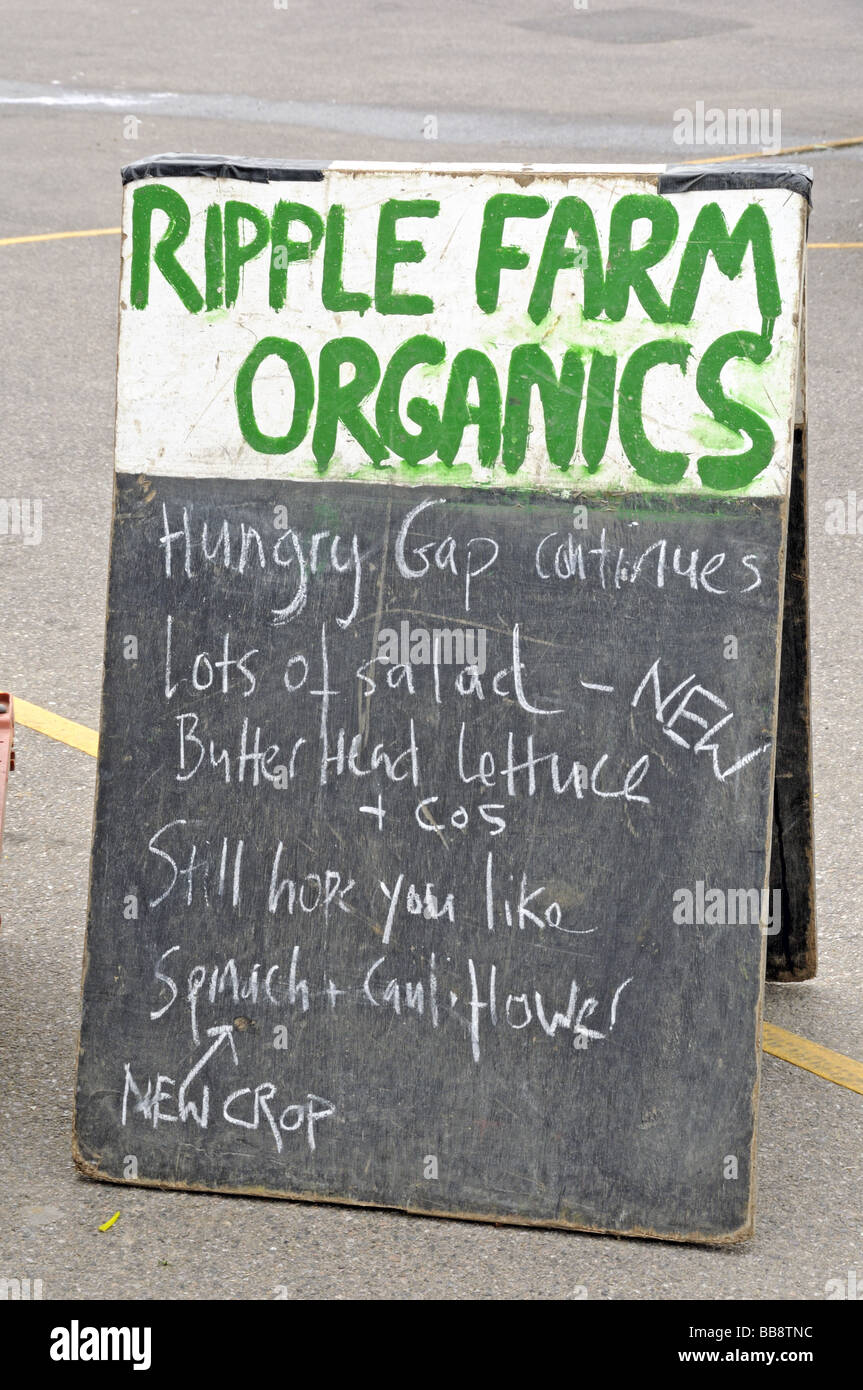 RIPPLE FARM
ORGANICS
Hungry Gap continues
Lots of salad - NEW
Butter Head lettuce
+ cos
Still hope you like
Spinach + Cauliflower
NEW CROP
alamy
Image ID: BB8TNC
www.alamy.com